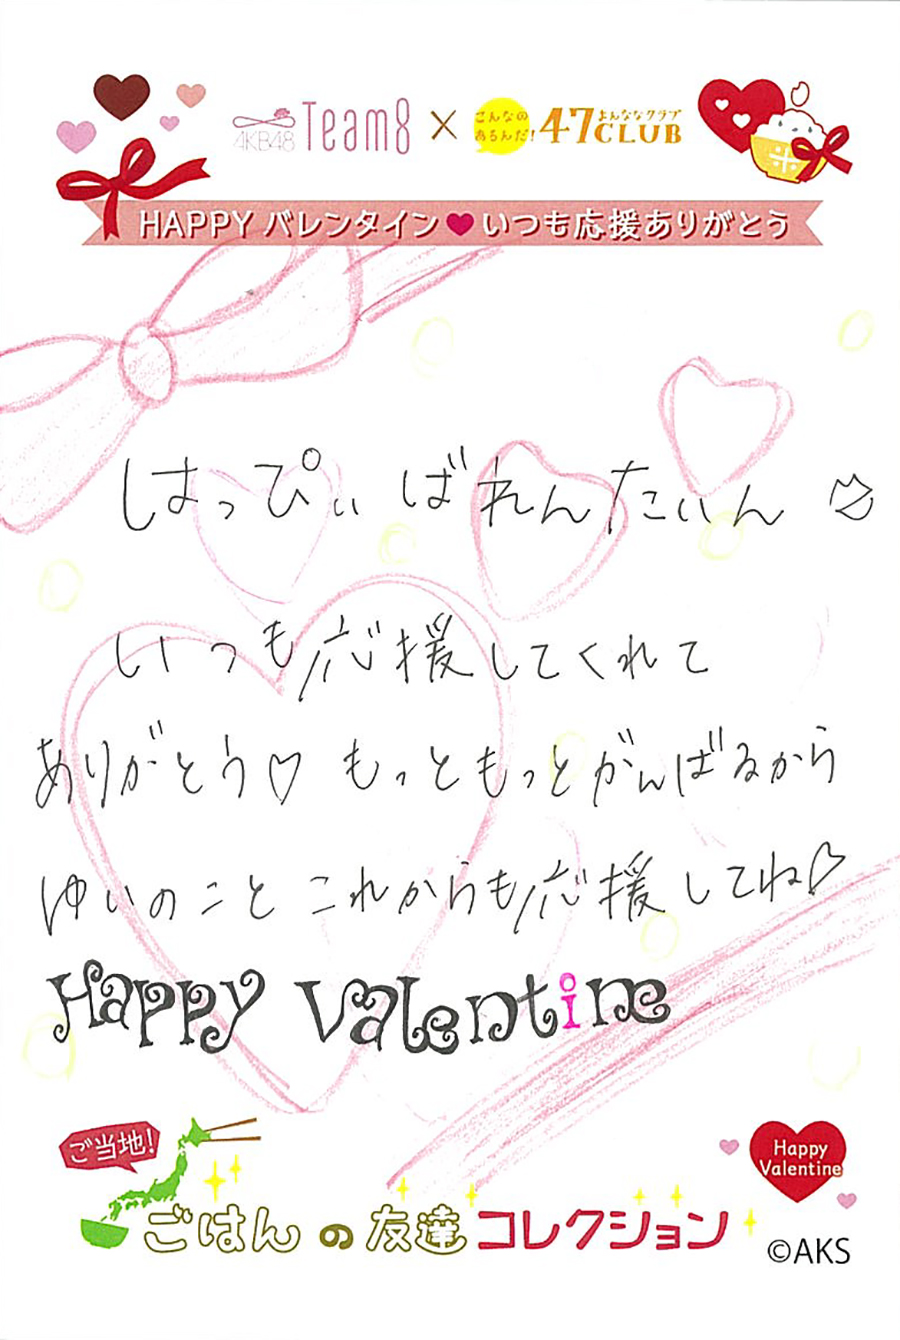 AKB48 Team8 × こんなの あるんだ! 47CLUB よんななクラブ
HAPPY バレンタイン♥いつも応援ありがとう
はっぴぃ ばれんたいん
いつも応援してくれて
ありがとう♡ もっともっとがんばるから
ゆいのこと これからも応援してね♡
Happy Valentine
ご当地!
ごはんの友達コレクション
Happy
Valentine
©AKS